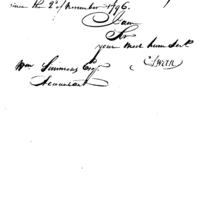 since the 2d November 1796.
I am
Sir
your most hum Servt
Wm Simmons Esqr
Accountant